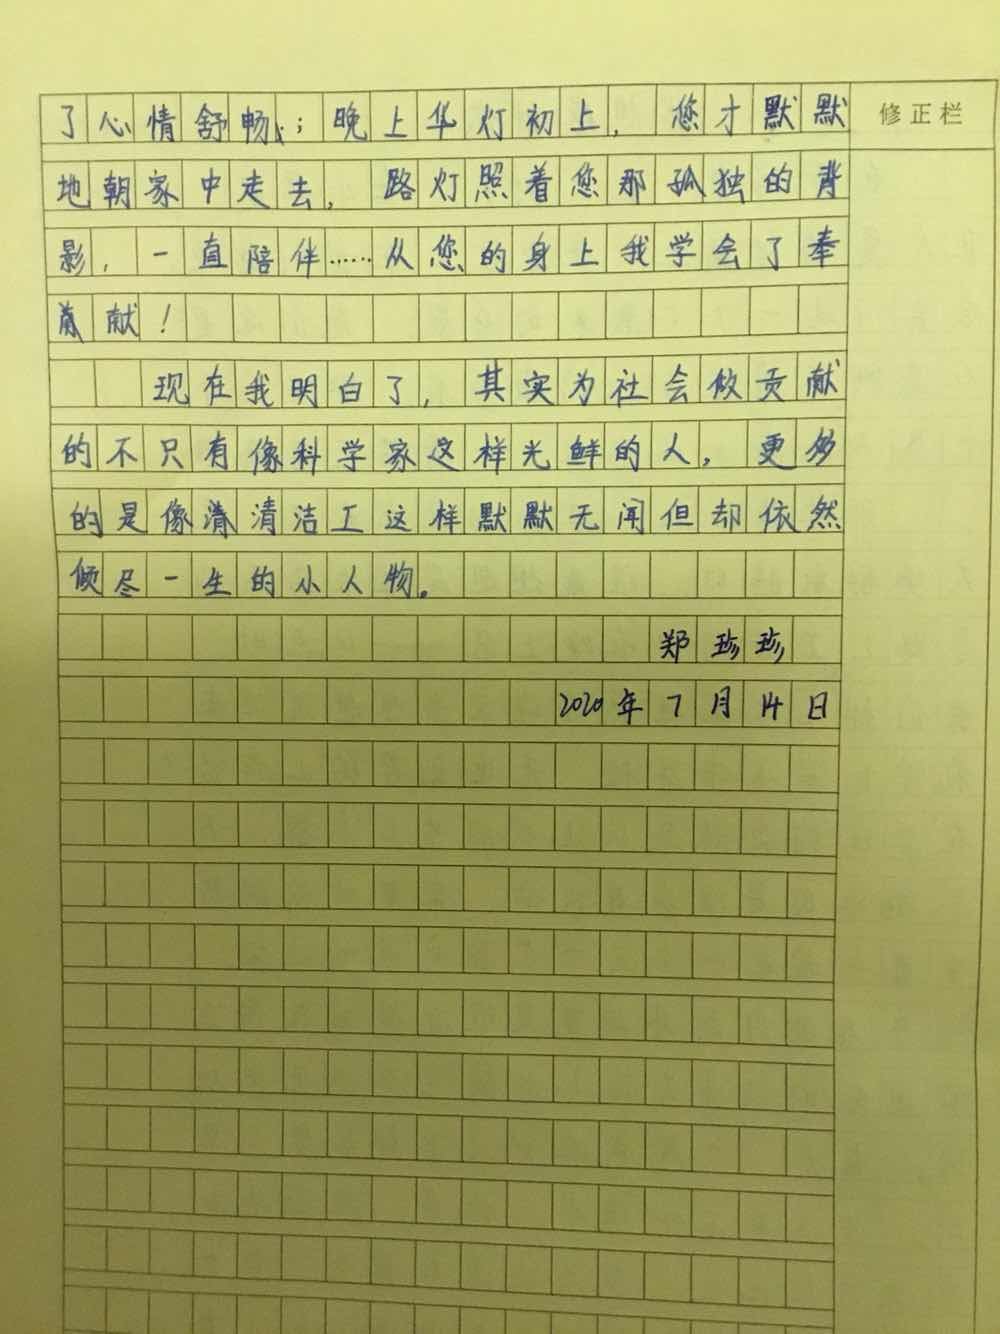 了心情舒畅；晚上华灯初上，您才默默
修正栏
地朝家中走去，路灯照着您那孤独的背
影，一直陪伴……从您的身上我学会了奉
献！
现在我明白了，其实为社会做贡献
的不只有像科学家这样光鲜的人，更多
的是像清清洁工这样默默无闻但却依然
倾尽一生的小人物。
郑珍珍
2020年7月14日